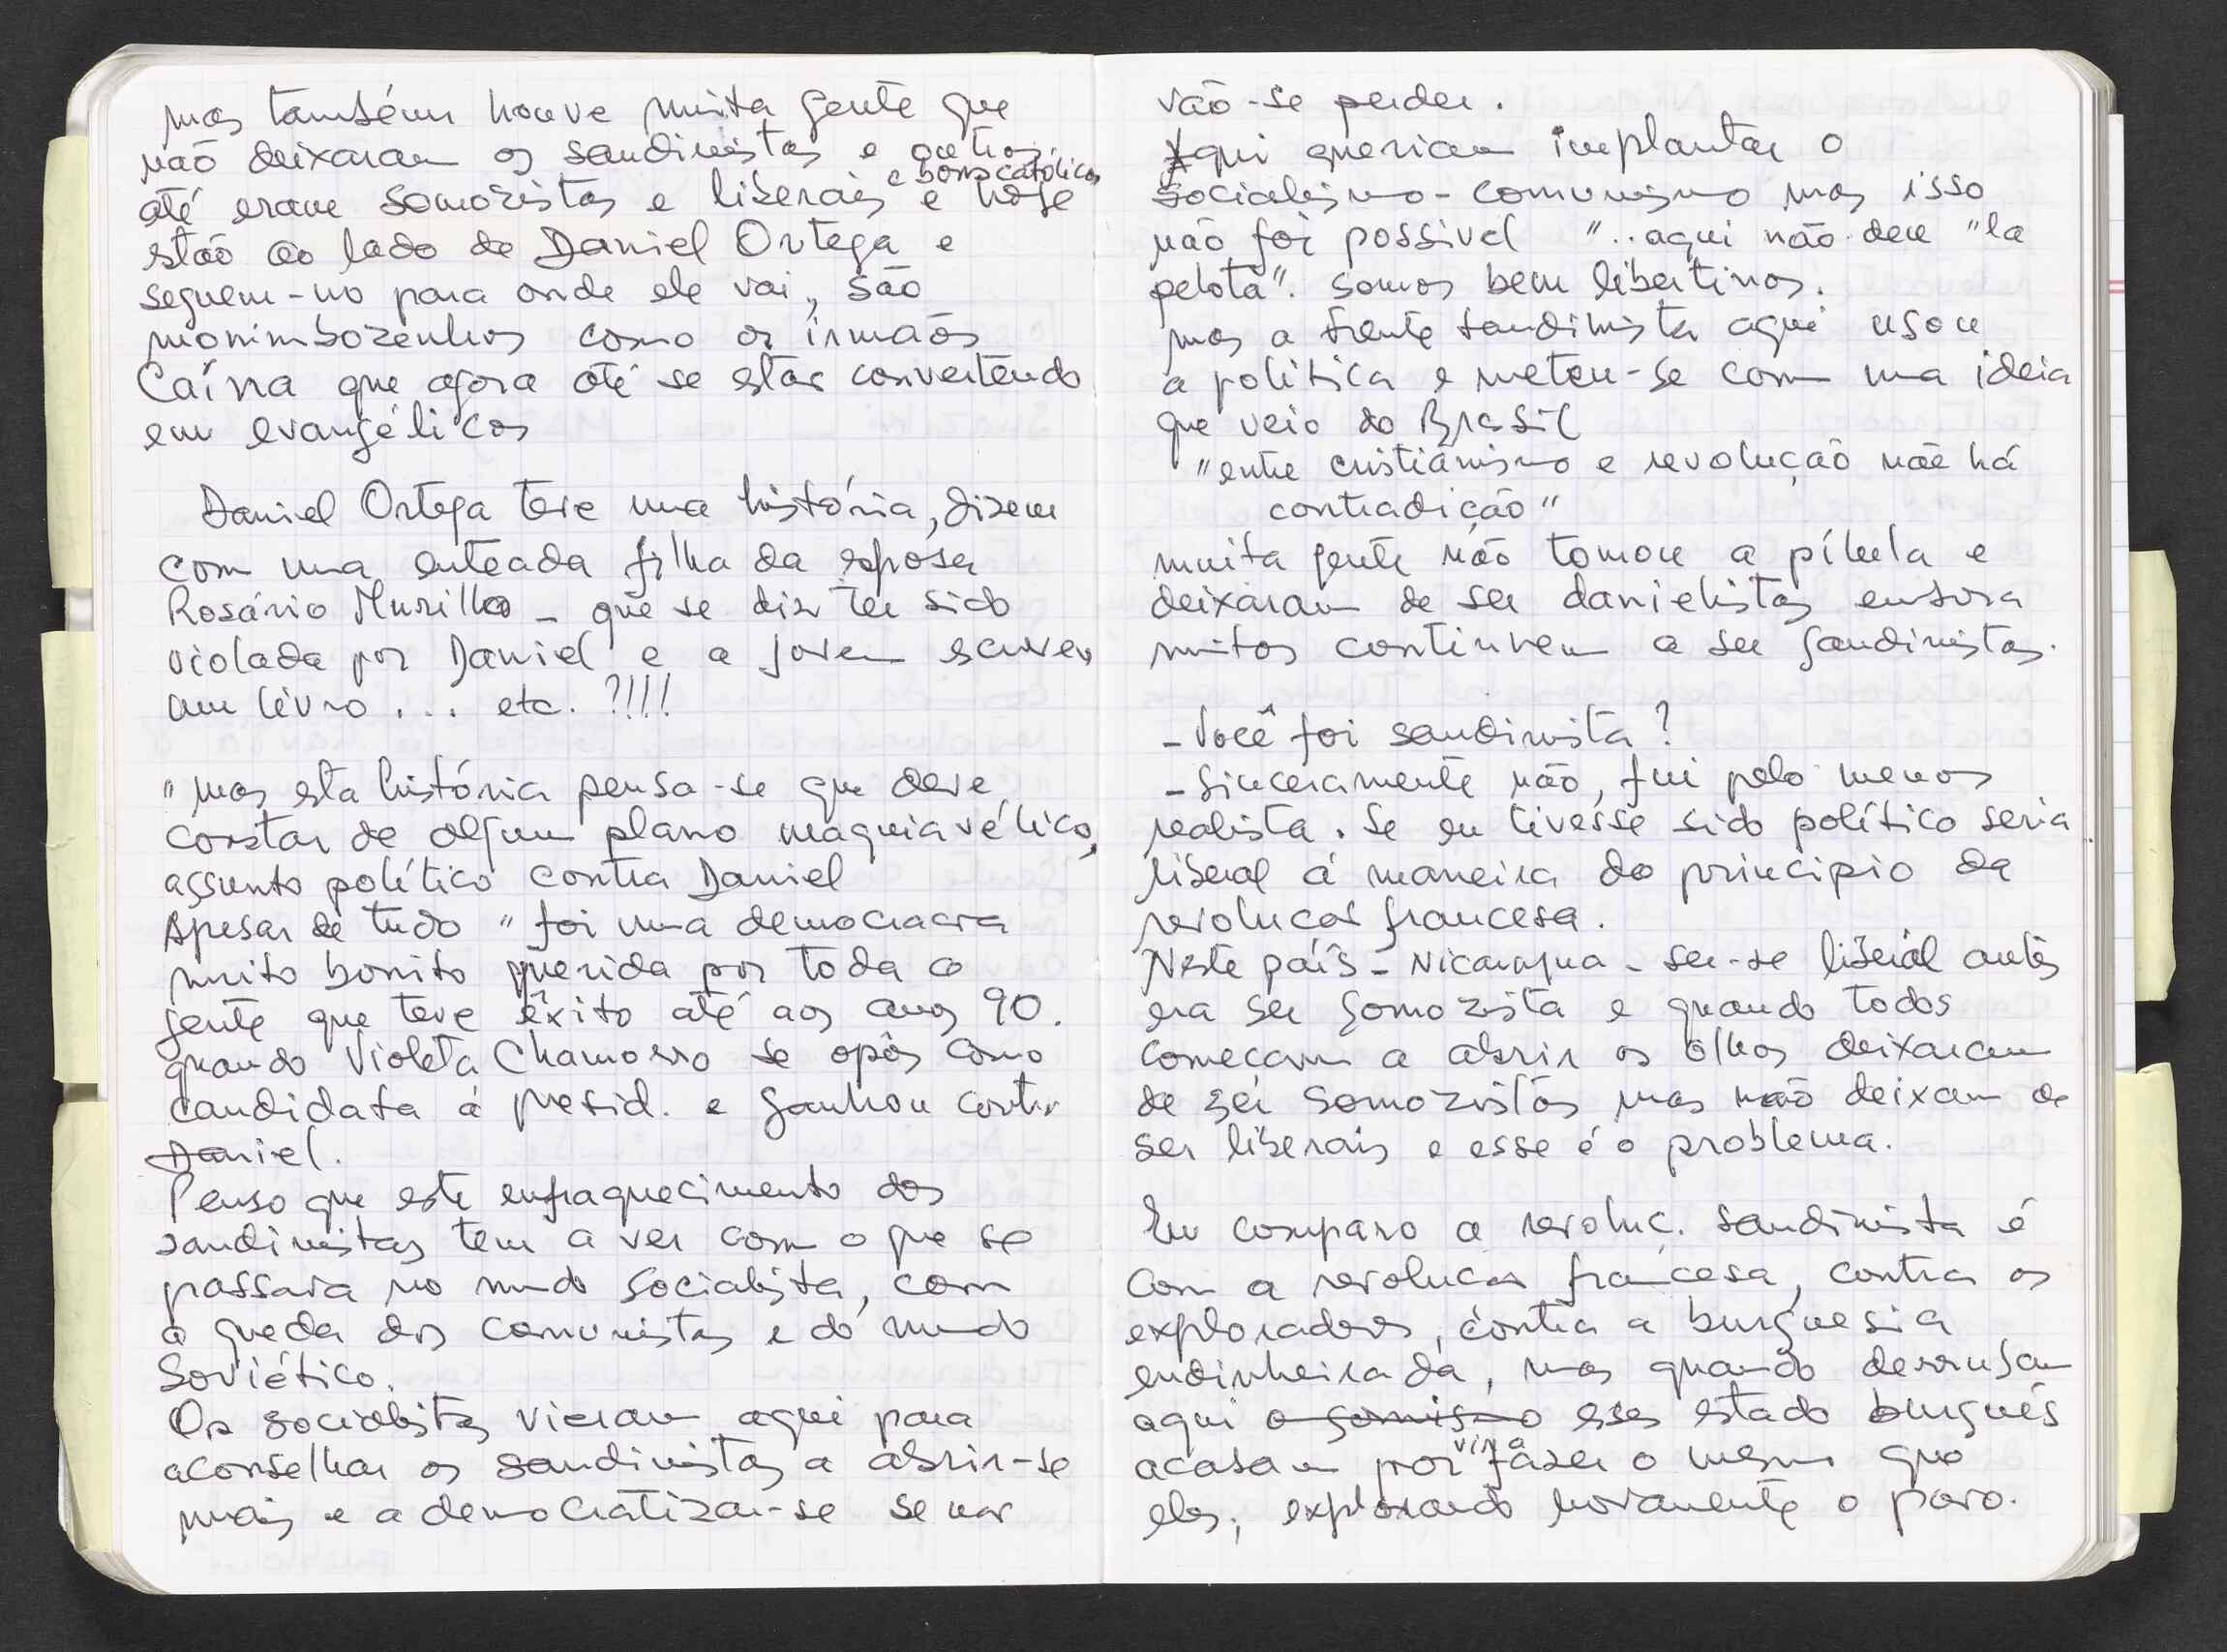 mas também houve muita gente que
não deixaram os sandinistas e outros
e bons católicos
até eram somozistas e liberais e hoje
estão ao lado de Daniel Ortega e
seguem-no para onde ele vai, são
monimbozenhos como os irmãos
Caína que agora até se estão convertendo
em evangélicos
Daniel Ortega teve uma história, dizem
com uma enteada filha da esposa
Rosário Murillo - que se diz ter sido
violada por Daniel e a jovem escreveu
um livro ... etc. ?!!!!
" mas esta história pensa-se que deve
constar de algum plano maquiavélico,
assunto político contra Daniel
Apesar de tudo " foi uma democracia
muito bonito querida por toda a
gente que teve êxito até aos anos 90.
quando Violeta Chamorro se opôs como
candidata á presid. e ganhou contra
Daniel.
Penso que este enfraquecimento dos
sandinistas tem a ver com o que se
passava no mundo socialista, com
a queda dos comunistas e do mundo
Soviético.
Os socialistas vieram aqui para
aconselhar os sandinistas a abrir-se
mais e a democratizar-se se não
vão-se perder.
Aqui queriam implantar o
socialismo-comunismo mas isso
não foi possivel "..aqui não deu "la
pelota". somos bem libertinos.
mas a frente sandinista aqui usou
a política e meteu-se com uma ideia
que veio do Brasil
"entre cristianismo e revolução não há
contradição"
muita gente não tomou a pílula e
deixaram de ser danielistas embora
muitos continuem a ser sandinistas.
- Você foi sandinista?
- Sinceramente não, fui pelo menos
realista. Se eu tivesse sido político seria
liberal á maneira do principio da
revolução francesa.
Neste país - Nicarágua - ser-se liberal antes
era ser somozista e quando todos
começam a abrir os olhos deixaram
de ser somozistas mas não deixam de
ser liberais e esse é o problema.
Eu comparo a revoluç. sandinista é
com a revolução francesa, contra os
exploradores, contra a burguesia
endinheirada, mas quando derrubam
aqui o somosismo esses estado burguês
vir a
acabam por fazer o mesmo que
eles, explorando novamente o povo.